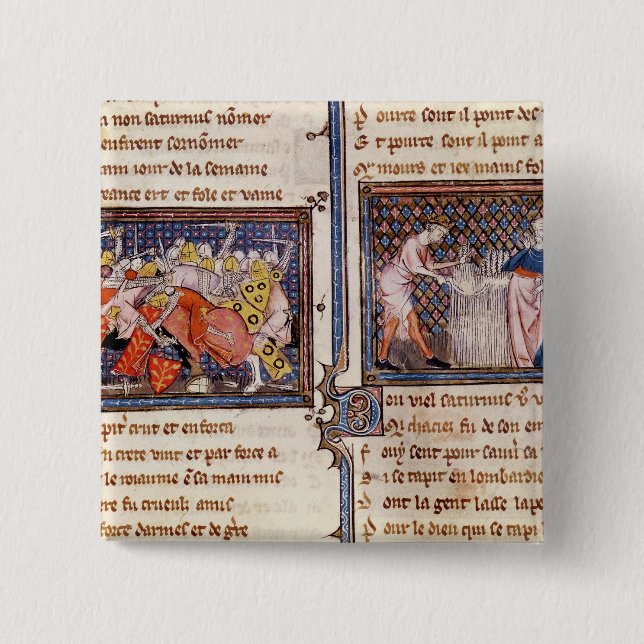 a non saturnus nõmer
enfirent sornõmer
iour de la semaine
eance ert et fole et vaine
pit crut et en force
n crete vint et par force a
le roiaume
re fu crueus amis
force darmes et de gẽre
P ourte sont il point des
E t pourte sont il point a
mours et iex mains fole
B en viel saturnus
Q i chacies fu de son em
F ouy sent pour sauu sa
I l se tapit en lombardie
D ont la gent lasse lape
P our le dieu qui se tapi